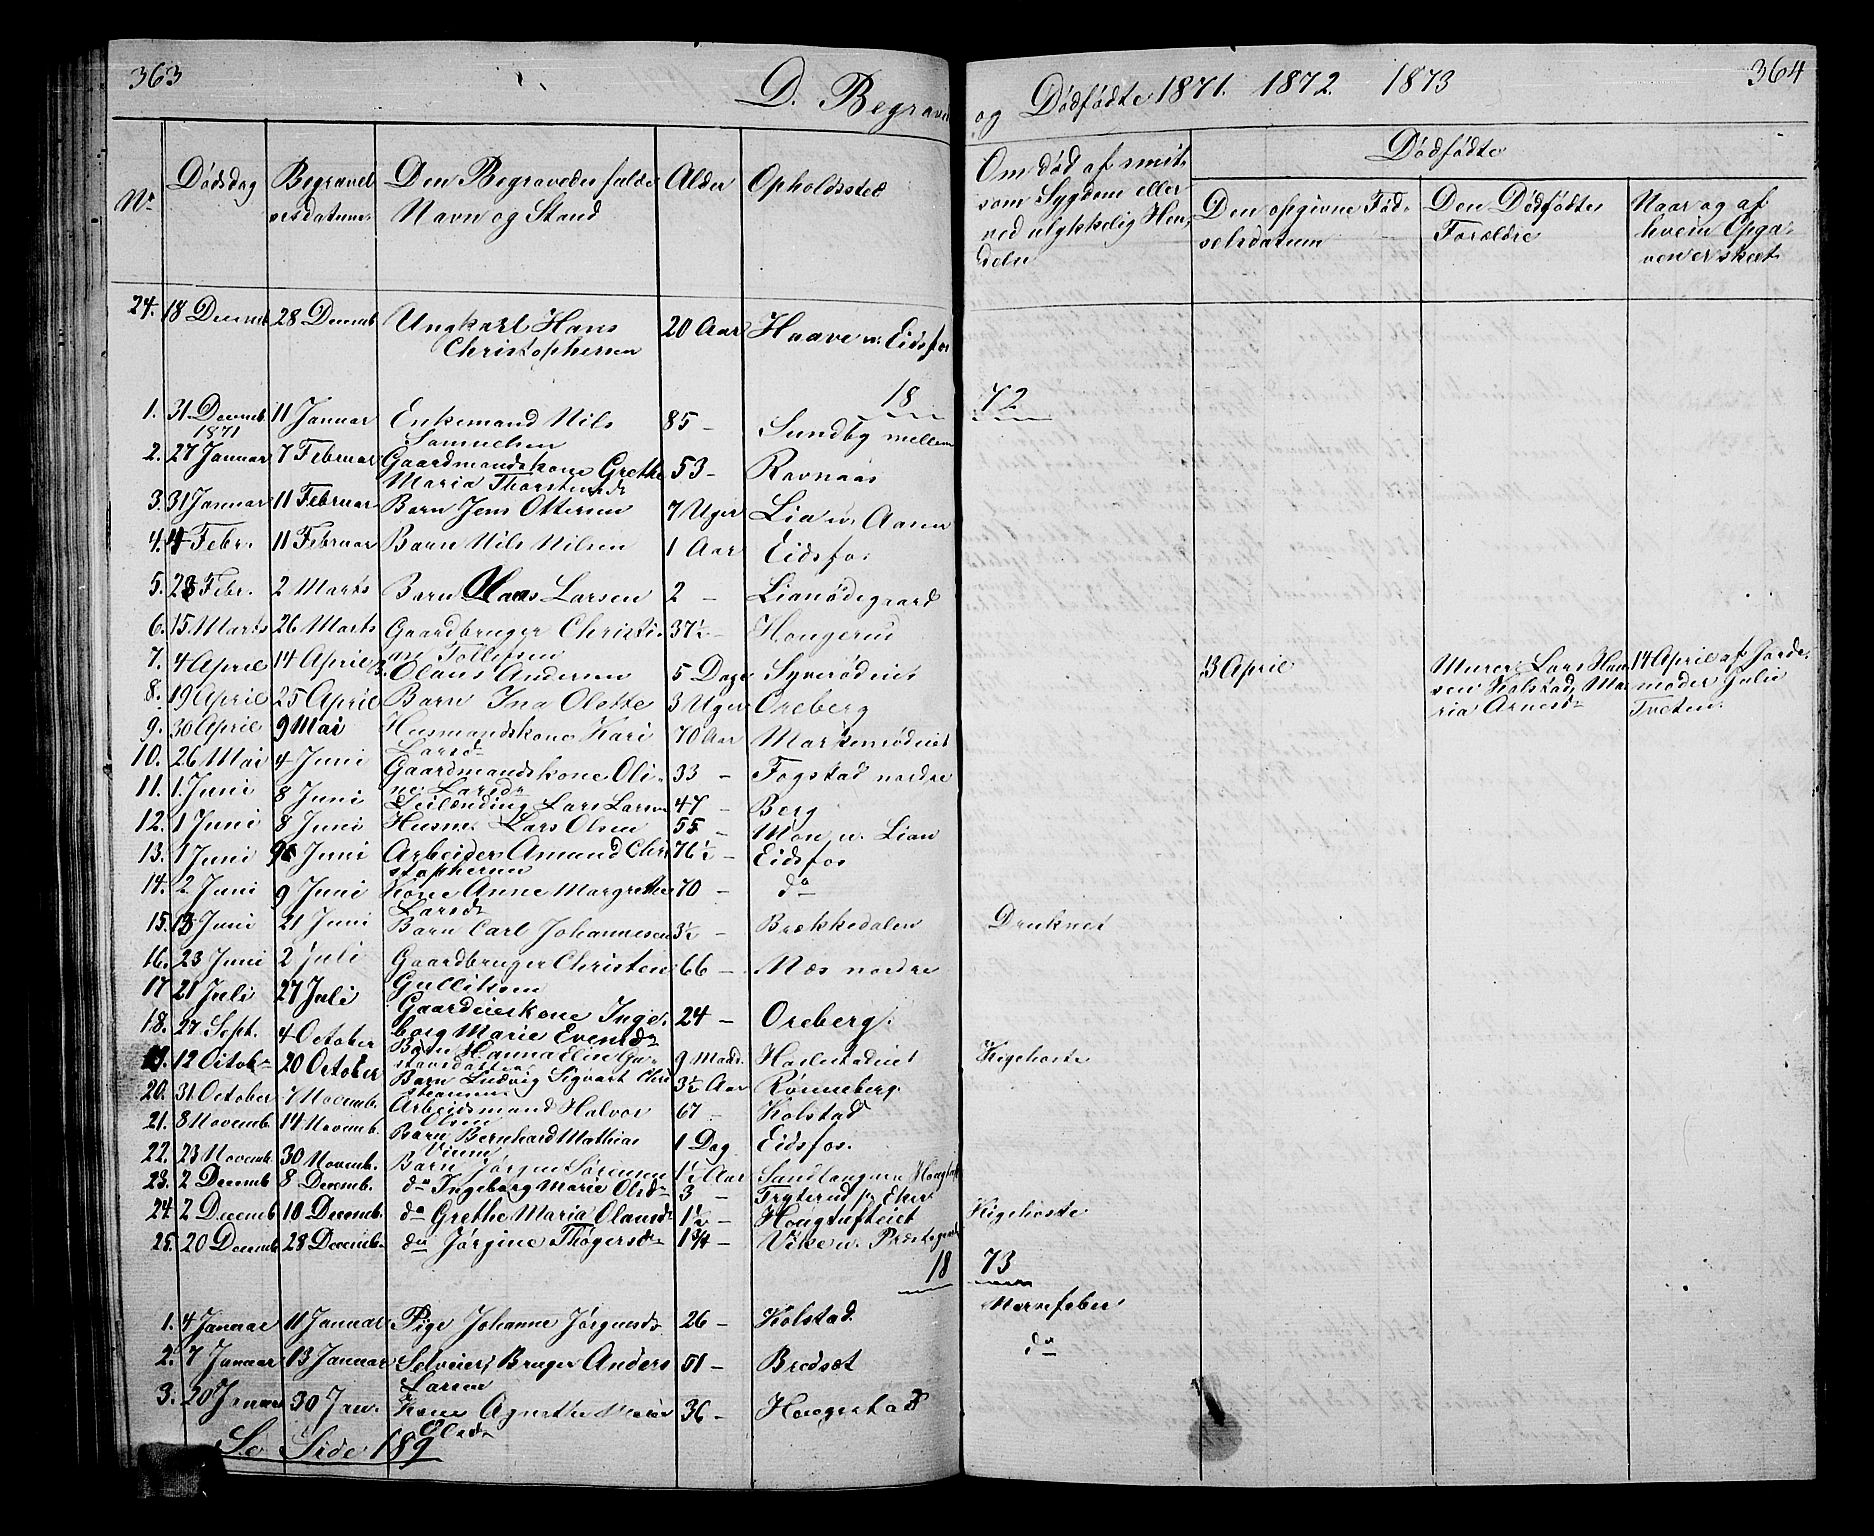 363
D. Begraved
og Dødfødte 1871. 1872. 1873
364
Nr.
Dødsdag
Begravel
sesdatum
Den Begravedes fulde
Navn og Stand
Alder
Opholdssted
Om død af smit
som Sygdom eller
ved ulykkelig Hen
delse
Dødfødte
Den opgivne Fød-
selsdatum
Den Dødfødtes
Forældre
Naar og af
hvem Opga-
ven er skeet
24. 18 Decemb 28 Decemb Ungkarl Hans 20 Aar Haave u. Eidsfos
Christophersen
18 72
1. 31 Decemb 11 Januar Enkemand Nils 85 - Sundby mellem
1871 Samuelsen
2. 27 Januar 7 Februar Gaardmandskone Grethe 53 - Ravnaas
Maria Thorstensdr
3. 31 Januar 11 Februar Barn Jens Ottersen 7 Uger Lia u. Aasen
4. 4 Febr. 11 Februar Barn Nils Nilsen 1 Aar Eidsfos
5. 23 Febr. 2 Marts Barn Hans Larsen 2 - Lianødegaard
6. 15 Marts 26 Marts Gaardbruger Christi- 37½ - Hougerud
an Tollefsen
7. 4 April 14 April Olaus Andersen 5 Dage Syverødeiet 13 April Murer Lars Han 14 April af Jorde-
sen Kolstad, Ma moder Julie
ria Arnesdr Tveten.
8. 19 April 25 April Barn Ina Olette 3 Uger Oreberg
9. 30 April 9 Mai Husmandskone Kari 70 Aar
Larsdr
10. 26 Mai 4 Juni Gaardmandskone Oli- 33 - Fogstad nordre
ne Larsdr
11. 1 Juni 8 Juni Leilænding Lars Larsen 47 - Berg
12. 1 Juni 8 Juni Husm. Lars Olsen 55 - Moen u. Lian
13. 1 Juni 9 Juni Arbeider Amund Chri 76½ - Eidsfos
stophersen
14. 2 Juni 9 Juni Kone Anne Margrethe 70 - do
Larsdr
15. 13 Juni 21 Juni Barn Carl Johannesen 3½ - Brækkedalen Druknet
16. 23 Juni 2 Juli Gaardbruger Christen 66 - Næs nordre
Gullichsen
17 21 Juli 27 Juli Gaardeierskone Inge- 24 - Oreberg.
borg Marie Evensdr
18. 27 Sept. 4 October Barn Hanna Eline Gu- 9 Maad. Kighoste
stavsdatter
19. 12 Octobr 20 October Barn Ludvig Sigvart Chri 3½ Aar Rønneberg
stiansen
20. 31 October 7 Novemb. Arbeidsmand Halvor 67 - Kolstad
Olsen
21. 8 Novemb. 14 Novemb. Barn Bernhard Mathias 1 Dag Eidsfos.
22. 23 Novemb. 30 Novemb. Barn Jørgen Sørensen 1½ Aar
23. 2 Decemb 8 Decemb. do Ingeborg Marie Olsdr 3 - Fryterud p. Eker
24. 2 Decemb 10 Decemb. do Grethe Maria Olausdr 1½ - Hougtufteiet Kighoste
25. 20 Decemb 28 Decemb. do Jørgine Thøgersdr 1¾ - Vike u. Præstegaard
18 73
1. 4 Januar 11 Januar Pige Johanne Jørgensdr 26 - Kolstad Nervefeber
2. 7 Januar 13 Januar Selveier, Bruger Anders 51 - Bredsæt do
Larsen
3. 20 Januar 30 Jan. Kone Agnethe Marie 36 - Hougestad
Olsdr
Se Side 189